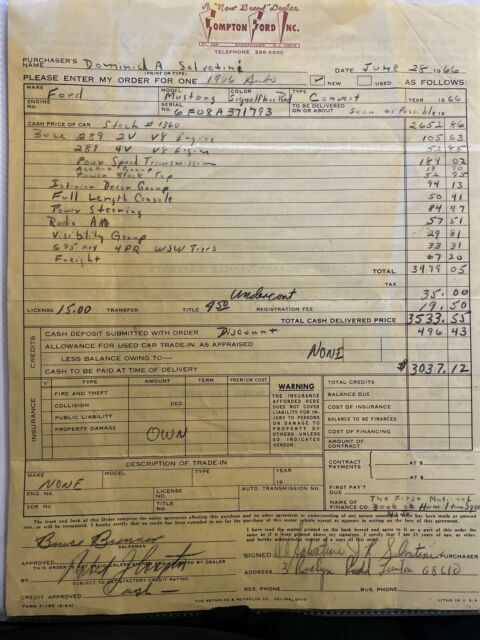 A "New Breed" Dealer
COMPTON FORD INC.
TELEPHONE
PURCHASER'S NAME Dominick A Salvatini DATE June 28 1966
(PRINT OR TYPE)
PLEASE ENTER MY ORDER FOR ONE 1966 Auto ✓ NEW USED AS FOLLOWS:
MAKE Ford MODEL Mustang COLOR Signal Flare Red TYPE Convert YEAR 1966
ENGINE NO. SERIAL NO. 6F08A371793 TO BE DELIVERED ON OR ABOUT Soon as Possible 19
CASH PRICE OF CAR Stock # 1360 2652 86
Base 289 2V V8 Engine 105 63
289 4V V8 Engine 52 85
Four Speed Transmission 184 02
Accent Group
Power Black Top 52 95
Interior Decor Group 94 13
Full Length Console 50 41
Power Steering 84 47
Radio AM 57 51
Visibility Group 29 81
695 x 14 4PR WSW Tires 33 31
Freight 67 20
TOTAL 3479 05
TAX
Undercoat 35.00
LICENSE 15.00 TRANSFER TITLE 4.50 REGISTRATION FEE 19.50
TOTAL CASH DELIVERED PRICE 3533.55
CREDITS
CASH DEPOSIT SUBMITTED WITH ORDER Discount 496 43
ALLOWANCE FOR USED CAR TRADE-IN AS APPRAISED
LESS BALANCE OWING TO— NONE
CASH TO BE PAID AT TIME OF DELIVERY $3037.12
INSURANCE
✓ TYPE AMOUNT TERM PREMIUM COST
FIRE AND THEFT
COLLISION DED.
PUBLIC LIABILITY
PROPERTY DAMAGE
OWN
WARNING
THE INSURANCE
AFFORDED HERE
DOES NOT COVER
LIABILITY FOR IN-
JURY TO PERSONS
OR DAMAGE TO
PROPERTY OF
OTHERS UNLESS
SO INDICATED
HEREON.
TOTAL CREDITS
BALANCE DUE
COST OF INSURANCE
BALANCE TO BE FINANCED
COST OF FINANCING
AMOUNT OF CONTRACT
DESCRIPTION OF TRADE-IN
MAKE NONE MODEL TYPE YEAR 19
ENG. NO. LICENSE NO. AUTO. TRANSMISSION NO.
SER. NO. TITLE NO.
CONTRACT PAYMENTS AT $
AT $
FIRST PAY'T DUE
NAME OF FINANCE CO. The First National
Bank of
The front and back of this Order comprise the entire agreement affecting this purchase and no other agreement or understanding of any nature concerning same has been made or entered
into, or will be recognized. I hereby certify that no credit has been extended to me for the purchase of this motor vehicle except as appears in writing on the face of this agreement.
I have read the matter printed on the back hereof and agree to it as a part of this order the same
as if it were printed above my signature. I certify that I am 21 years of age, or older,
and hereby acknowledge receipt of a copy of this order.
SALESMAN
APPROVED
THIS ORDER IS NOT VALID UNLESS SIGNED AND ACCEPTED BY DEALER
BY
SUBJECT TO SATISFACTORY CREDIT RATING
CREDIT APPROVED Cash
SIGNED PURCHASER
ADDRESS 3 Roslyn
RES. PHONE BUS. PHONE
THE REYNOLDS & REYNOLDS CO., CELINA, OHIO
LITHO IN U.S.A.